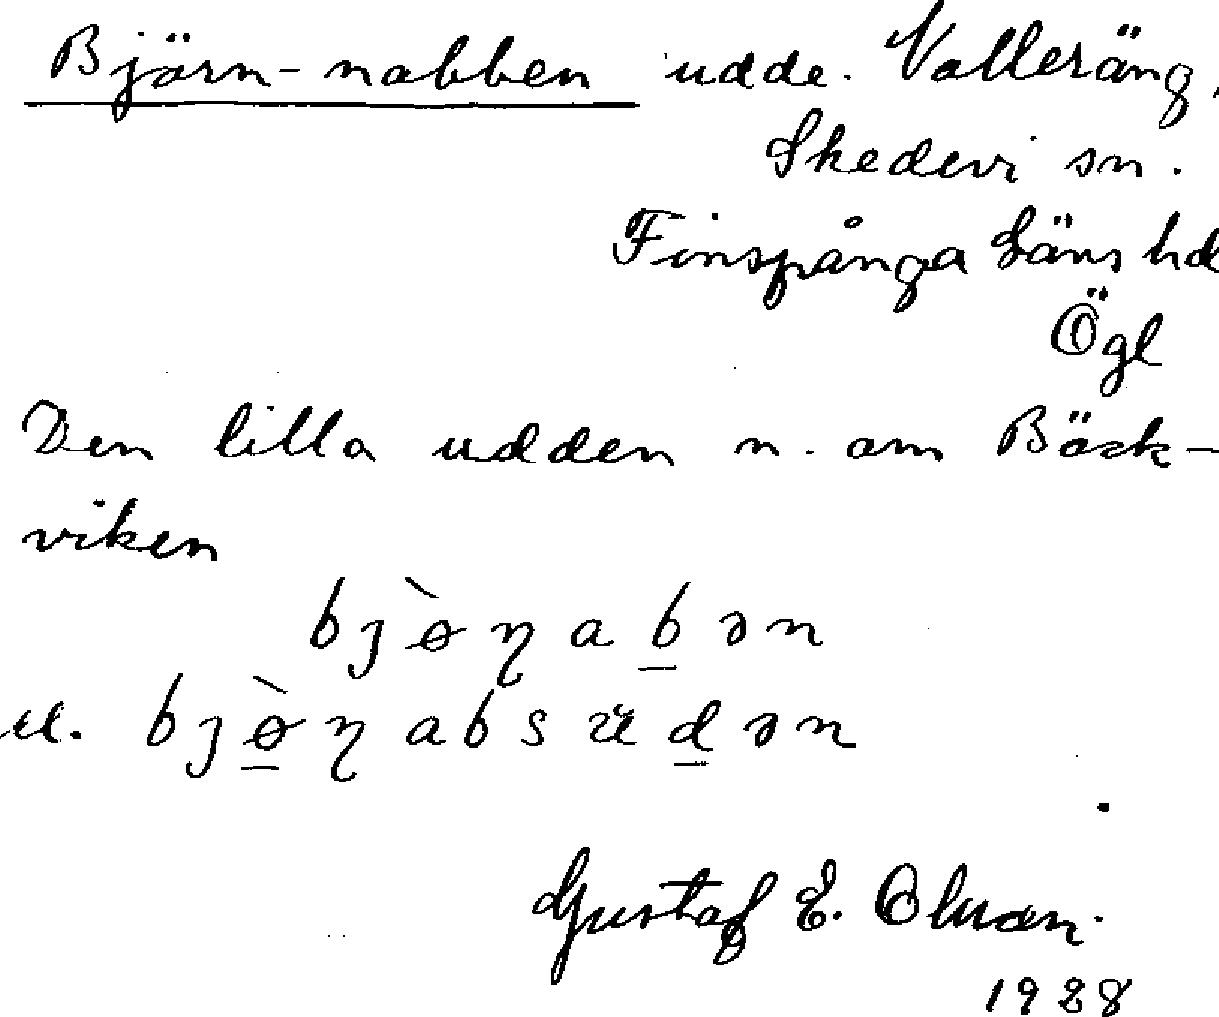 Björn-nabben udde. Valleräng,
Skedevi sn.
Finspånga Läns hd
Ögl
Den lilla udden n. om Bäck-
viken
bjɵ̀ɳabən
el. bjɵ̀ɳabsʉdən
Gustaf E. Olson.
1928